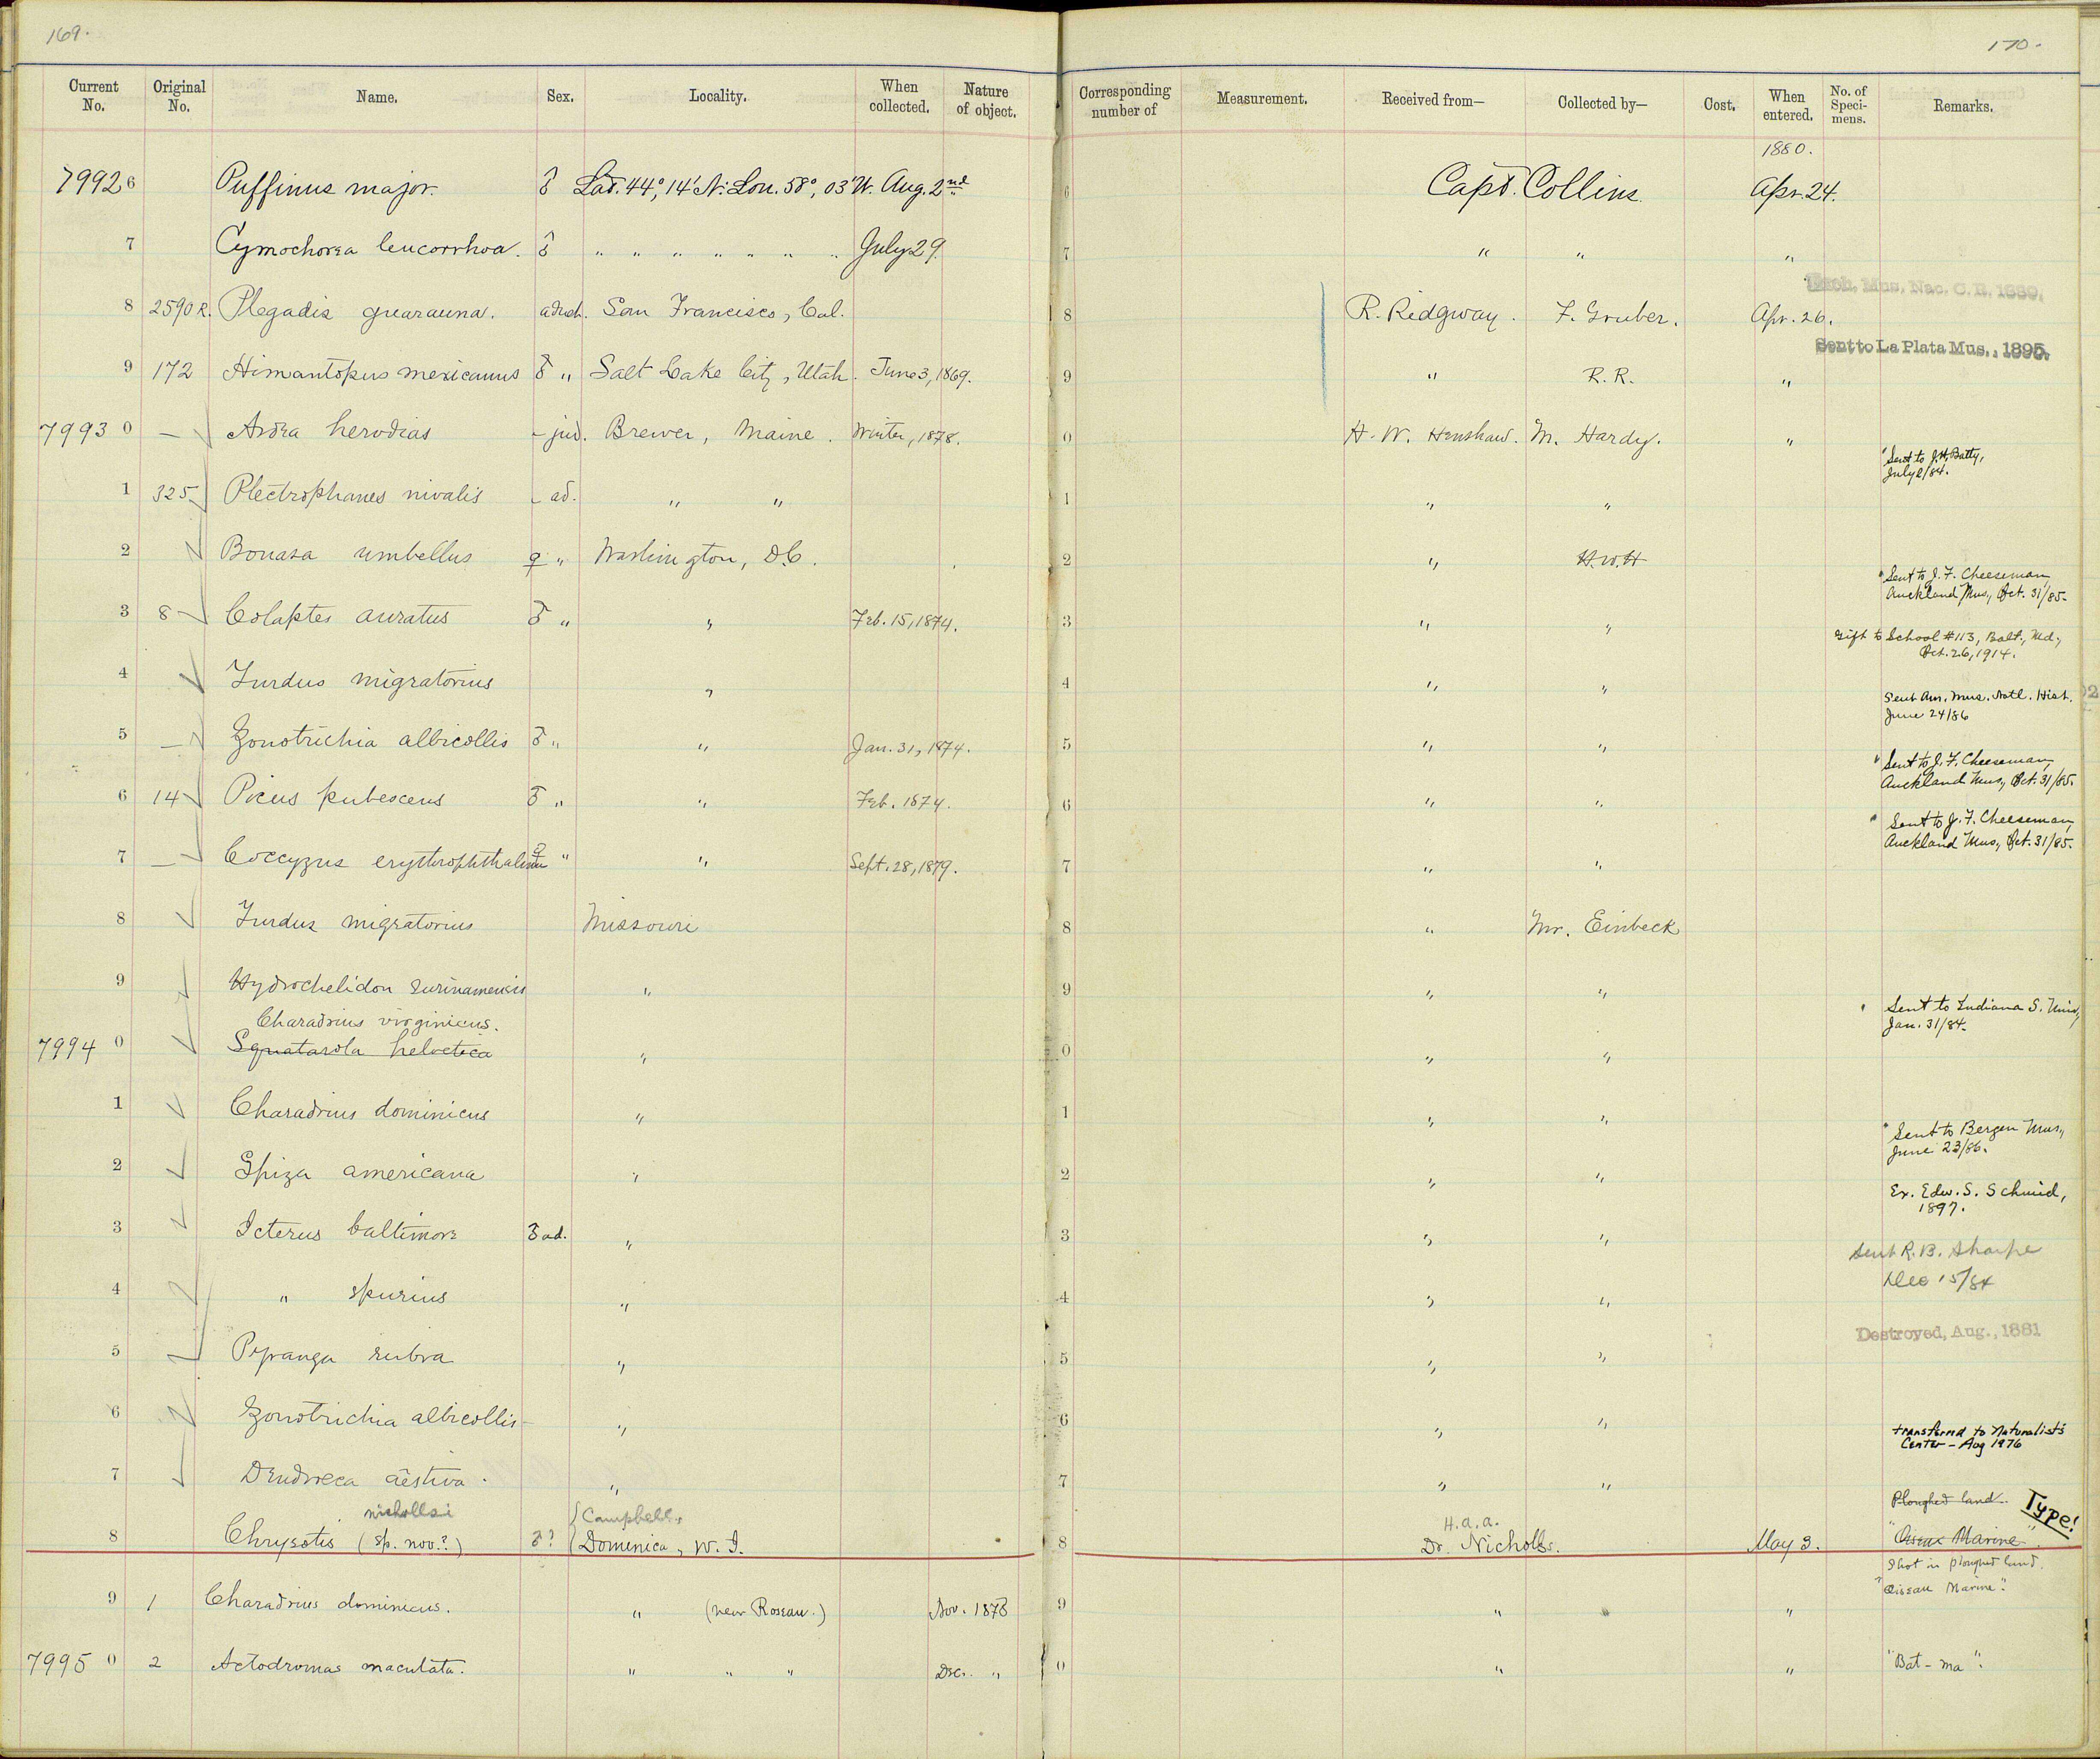 169.
170.
Current No. Original No. Name. Sex. Locality. When collected. Nature of object. Corresponding number of Measurement. Received from— Collected by— Cost. When entered. No. of Speci-mens. Remarks.
1880.
79926 Puffinus major. ♂ Lat. 44°, 14' N. Lon. 58°, 03' W. Aug. 2nd 6 Capt. Collins Apr. 24.
7 Cymochorea leucorrhoa. ♂ " " " " " " " July 29. 7 " " "
Exch. Mus. Nac. C.R. 1889.
8 2590 R. Plegadis guarauna. adult. San Francisco, Cal. 8 R. Ridgway. F. Gruber. Apr. 26.
Sent to La Plata Mus., 1895.
9 172 Himantopus mexicanus ♂ " Salt Lake City, Utah. June 3, 1869. 9 " R. R. "
7993 0 — Ardea herodias - juv. Brewer, Maine. Winter, 1878. 0 H. W. Henshaw. M. Hardy. "
Sent to J. H. Batty,
July 2/84.
1 325 Plectrophanes nivalis - ad. " " 1 " "
2 Bonasa umbellus ♀ " Washington, D.C. 2 " H.W.H
Sent to J. F. Cheeseman,
Auckland Mus, Oct. 31/85.
3 8 Colaptes auratus ♂ " " Feb. 15, 1874. 3 " "
Gift to School #113, Balt., Md.,
Oct. 26, 1914.
4 Turdus migratorius " 4 " "
Sent Am. Mus. Natl. Hist.
June 24/86
5 — Zonotrichia albicollis ♂ " " Jan. 31, 1874. 5 " "
Sent to J. F. Cheeseman,
Auckland Mus, Oct. 31/85.
6 14 Picus pubescens ♂ " " Feb. 1874. 6 " "
Sent to J. F. Cheeseman,
Auckland Mus, Oct. 31/85.
7 — Coccyzus erythrophthalmus ♀ " " Sept. 28, 1879. 7 " "
8 Turdus migratorius Missouri 8 " Mr. Einbeck
9 Hydrochelidon surinamensis " 9 " "
Sent to Indiana S. Univ,
Jan. 31/84.
Charadrius virginicus.
7994 0 Squatarola helvetica " 0 " "
1 Charadrius dominicus " 1 " "
Sent to Bergen Mus,
June 23/86.
2 Spiza americana " 2 " "
Ex. Edw. S. Schmid,
1897.
3 Icterus baltimore ♂ ad. " 3 " "
Sent R. B. Sharpe
Dec 15/84
4 " spurius " 4 " "
Destroyed, Aug., 1881
5 Pyranga rubra " 5 " "
6 Zonotrichia albicollis " 6 " "
transferred to Naturalists
Center - Aug 1976
7 Dendroeca aestiva. " 7 " "
nichollsi Campbell, H. a. a. Ploughed land. Type!
8 Chrysotis (sp. nov.?) ♂? Dominica, W. I. 8 Dr. Nicholls. May 3. "Oiseau Marine".
Shot in ploughed land.
"Oiseau Marine".
9 1 Charadrius dominicus. " (near Roseau.) Nov. 1878 9 " "
7995 0 2 Actodromas maculata. " " " Dec. " 0 " " "Bat-ma".